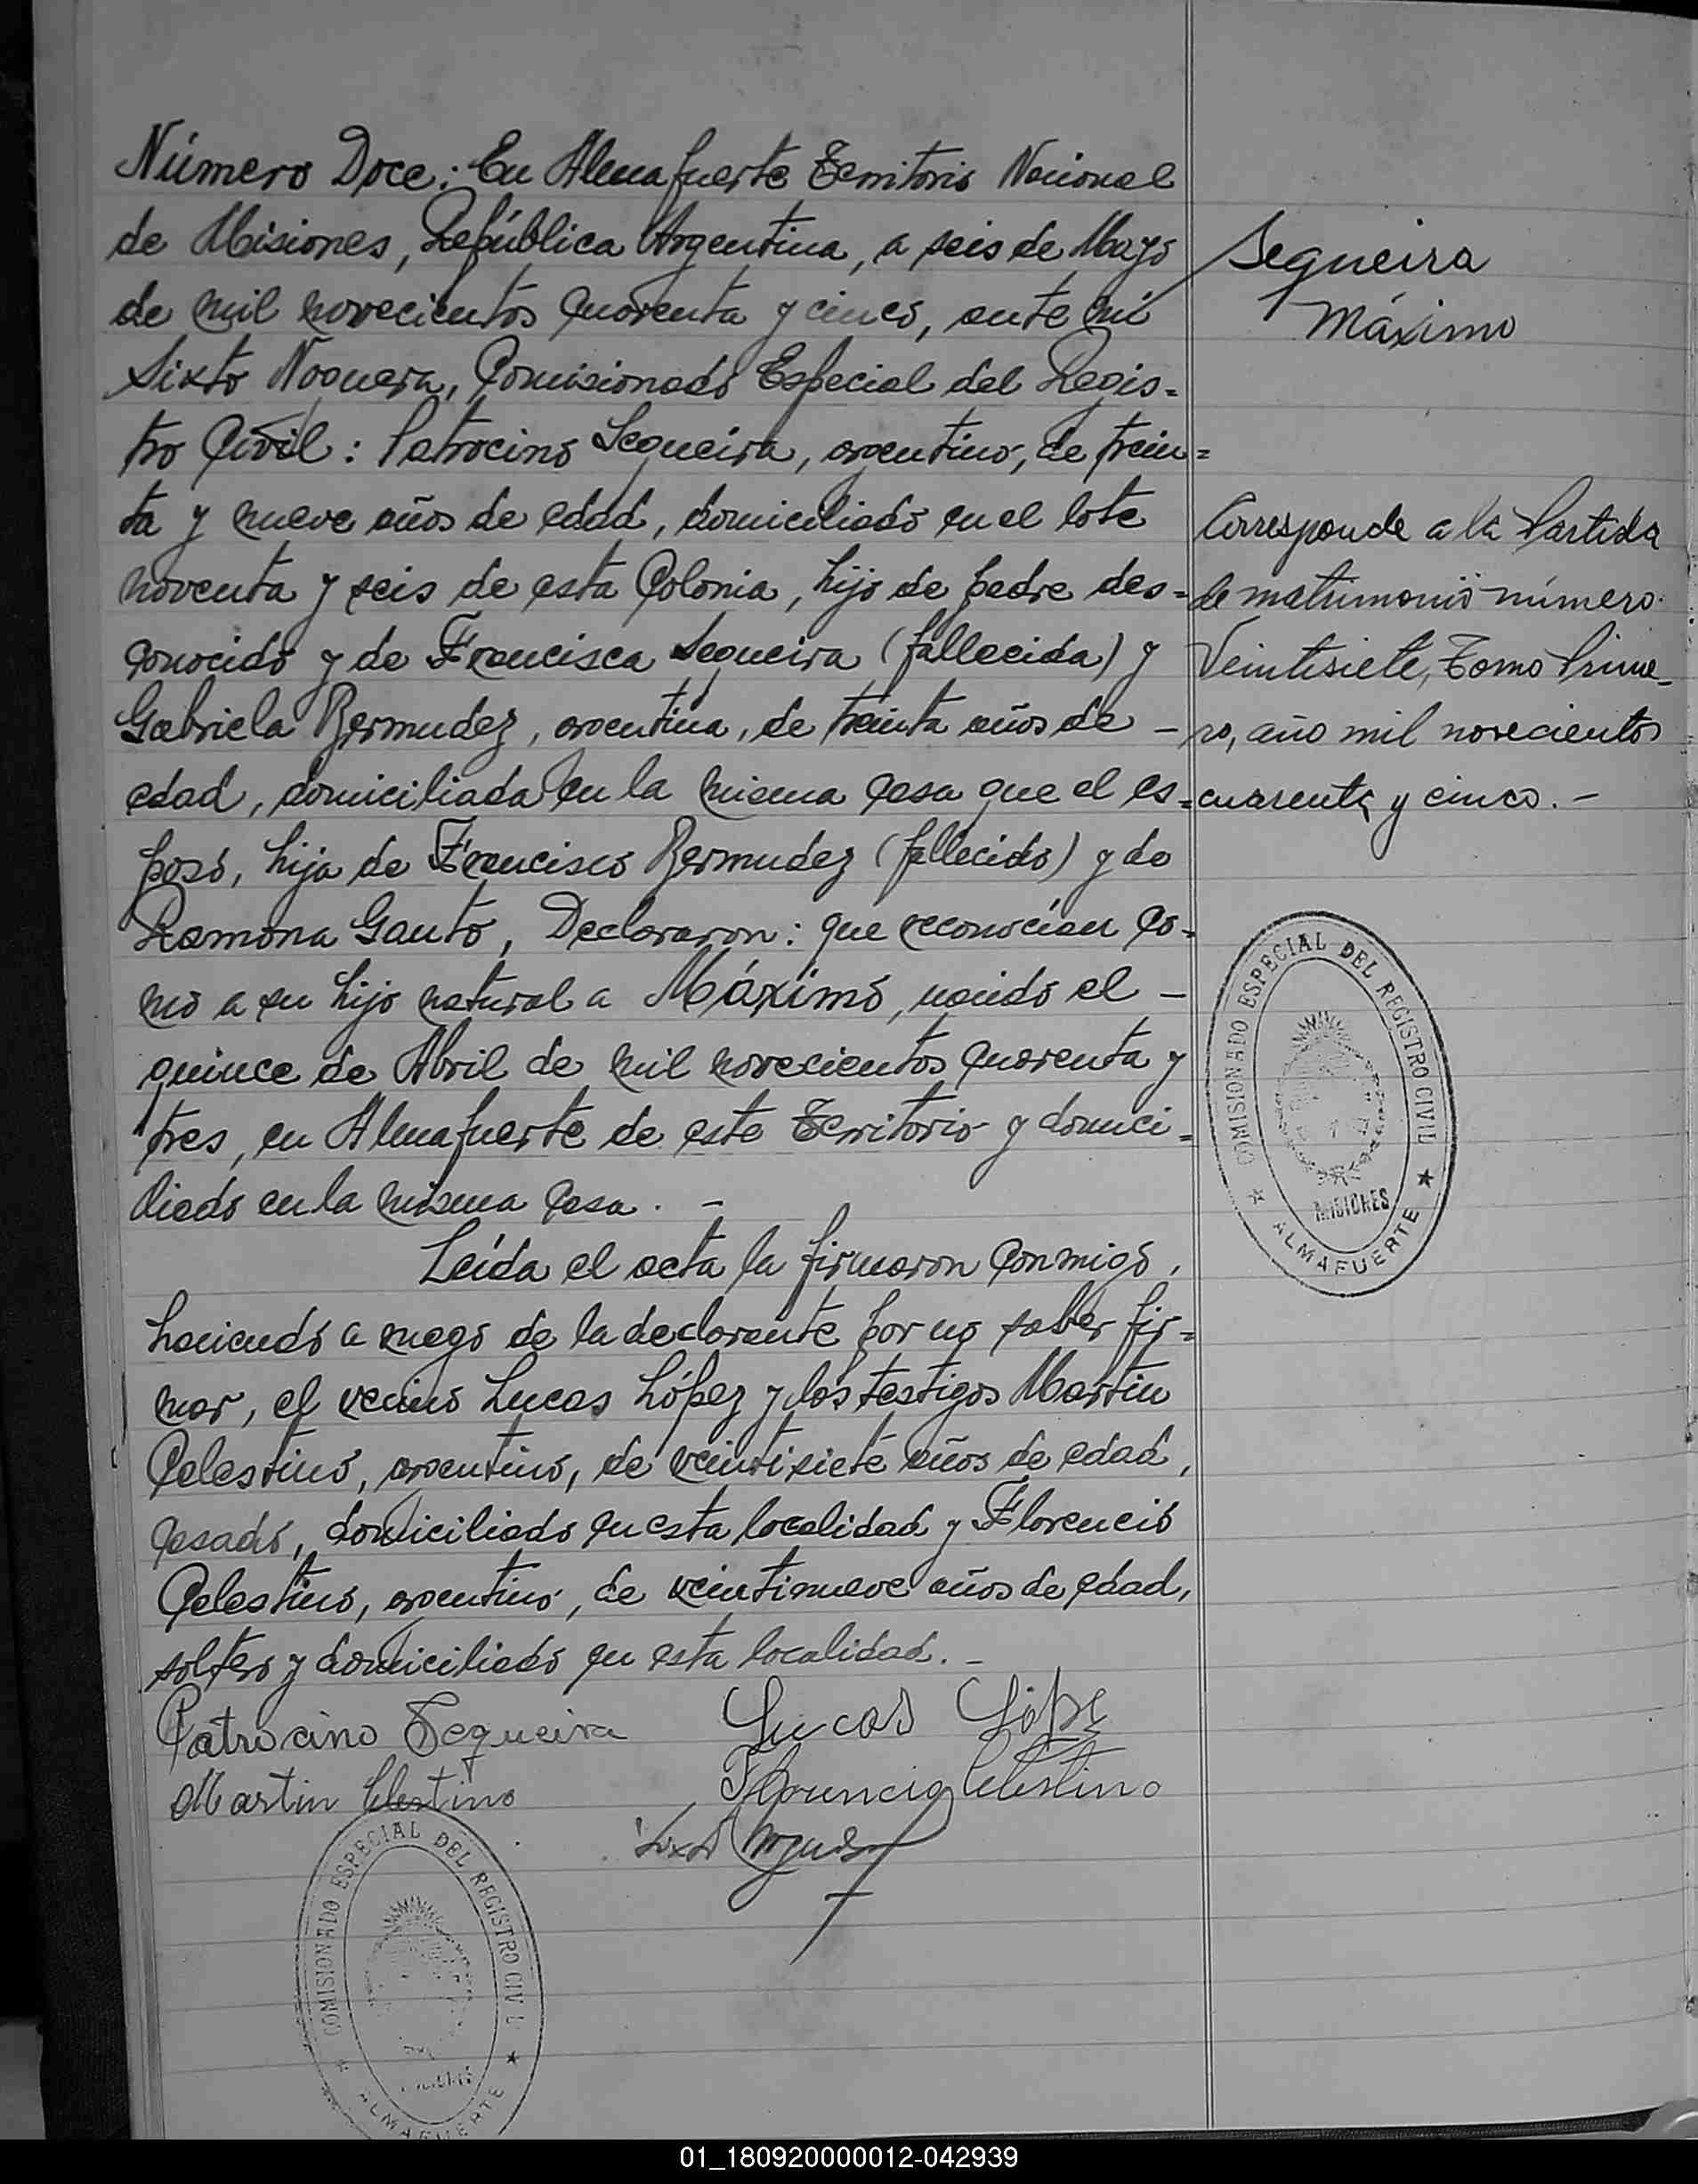 Número Doce: En Almafuerte Territorio Nacional
de Misiones, República Argentina, a seis de Mayo
de mil novecientos cuarenta y cinco, ante mí
Sixto Noguera, Comisionado Especial del Regis=
tro Civil: Patrocino Sequeira, argentino, de trein=
ta y nueve años de edad, domiciliado en el lote
noventa y seis de esta Colonia, hijo de padre des=
conocido y de Francisca Sequeira (fallecida) y
Gabriela Bermudez, argentina, de treinta años de -
edad, domiciliada en la misma casa que el es=
poso, hija de Francisco Bermudez (fallecido) y de
Ramona Gauto, Declararon: que reconocían co=
mo a su hijo natural a Máximo, nacido el -
quince de Abril de mil novecientos cuarenta y
tres, en Almafuerte de este Territorio y domici=
liado en la misma casa. -
Leída el acta la firmaron conmigo,
haciendo a ruego de la declarante por no saber fir=
mar, el vecino Lucas López y los testigos Martin
Celestino, argentino, de veintisiete años de edad,
casado, domiciliado en esta localidad y Florencio
Celestino, argentino, de veintinueve años de edad,
soltero y domiciliado en esta localidad. -
Patrocino Sequeira Lucas Lópe
Martin Celestino Florencio Celestino
Sequeira
Máximo
Corresponde a la Partida
de matrimonio número
Veintisiete, Tomo Prime-
ro, año mil novecientos
cuarenta y cinco. -
COMISIONADO ESPECIAL DEL REGISTRO CIVIL
MISIONES
★ ALMAFUERTE ★
COMISIONADO ESPECIAL DEL REGISTRO CIVIL
★ ALMAFUERTE ★
01_180920000012-042939